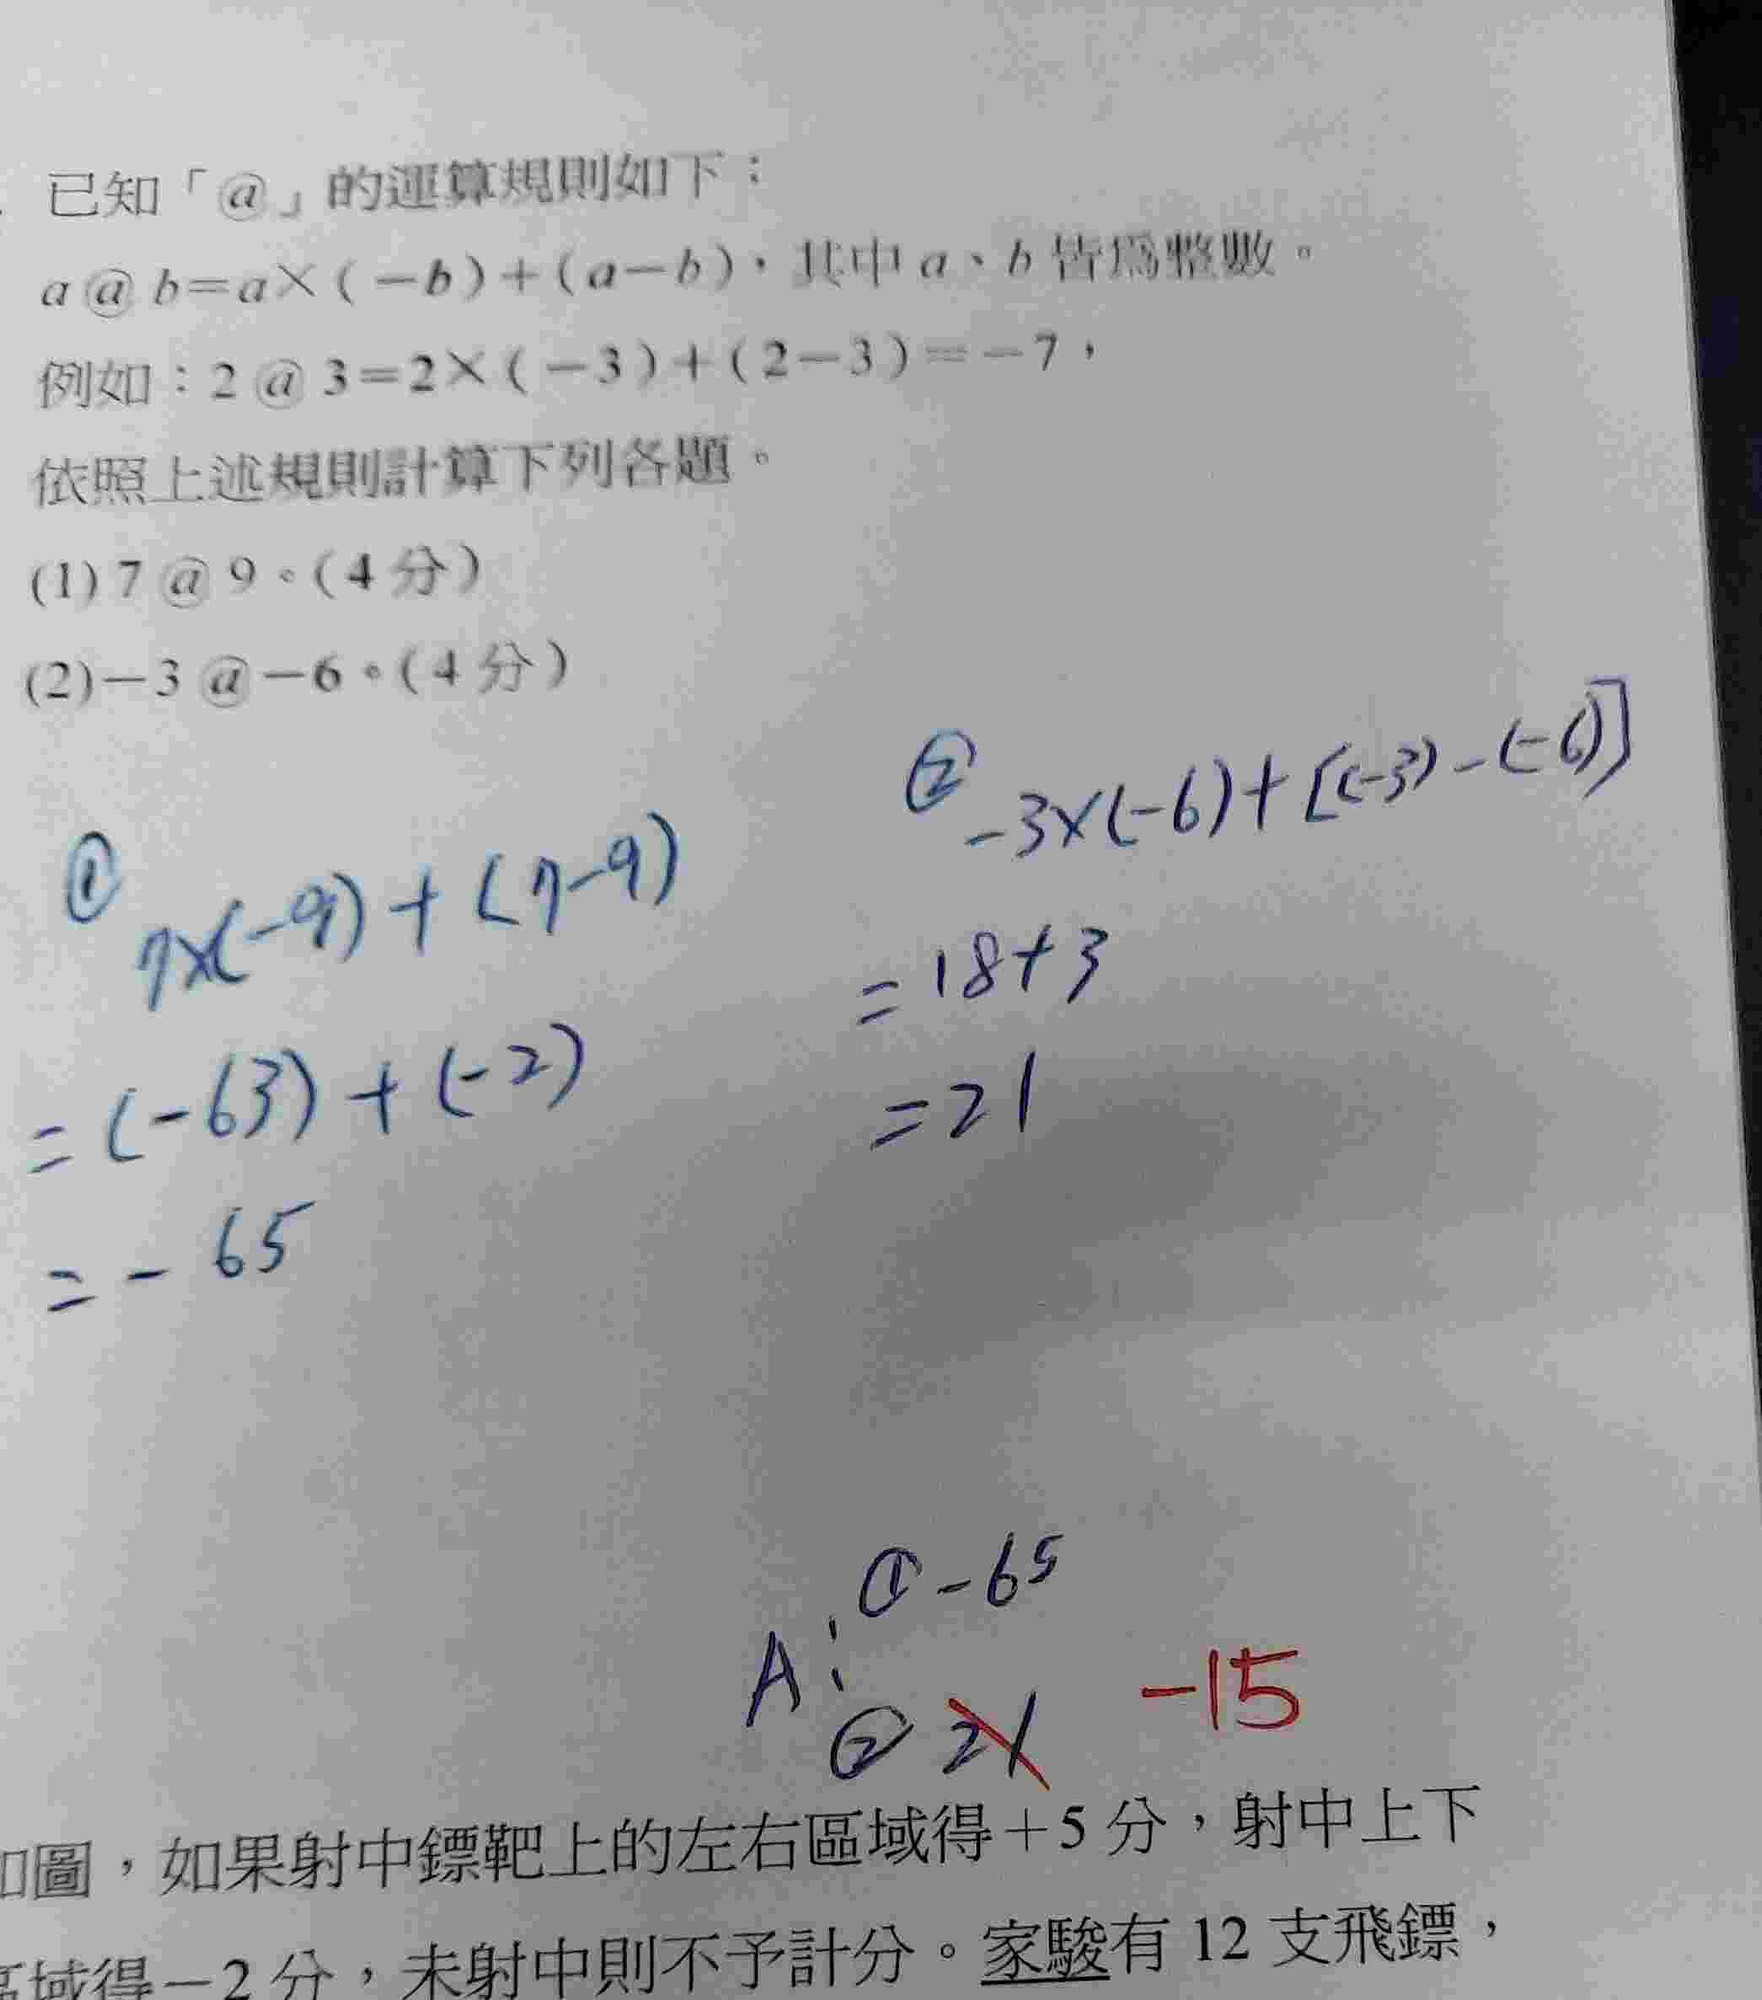 已知「@」的運算規則如下：
a @ b=a×(－b)＋(a－b)，其中 a、b 皆為整數。
例如：2 @ 3=2×(－3)＋(2－3)=－7，
依照上述規則計算下列各題。
(1) 7 @ 9。(4 分)
(2)－3 @－6。(4 分)
① 7×(-9)+(7-9)
=(-63)+(-2)
=-65
② -3×(-6)+[(-3)-(-6)]
=18+3
=21
A: ①-65
② 21 -15
如圖，如果射中鏢靶上的左右區域得＋5 分，射中上下
區域得－2 分，未射中則不予計分。家駿有 12 支飛鏢，